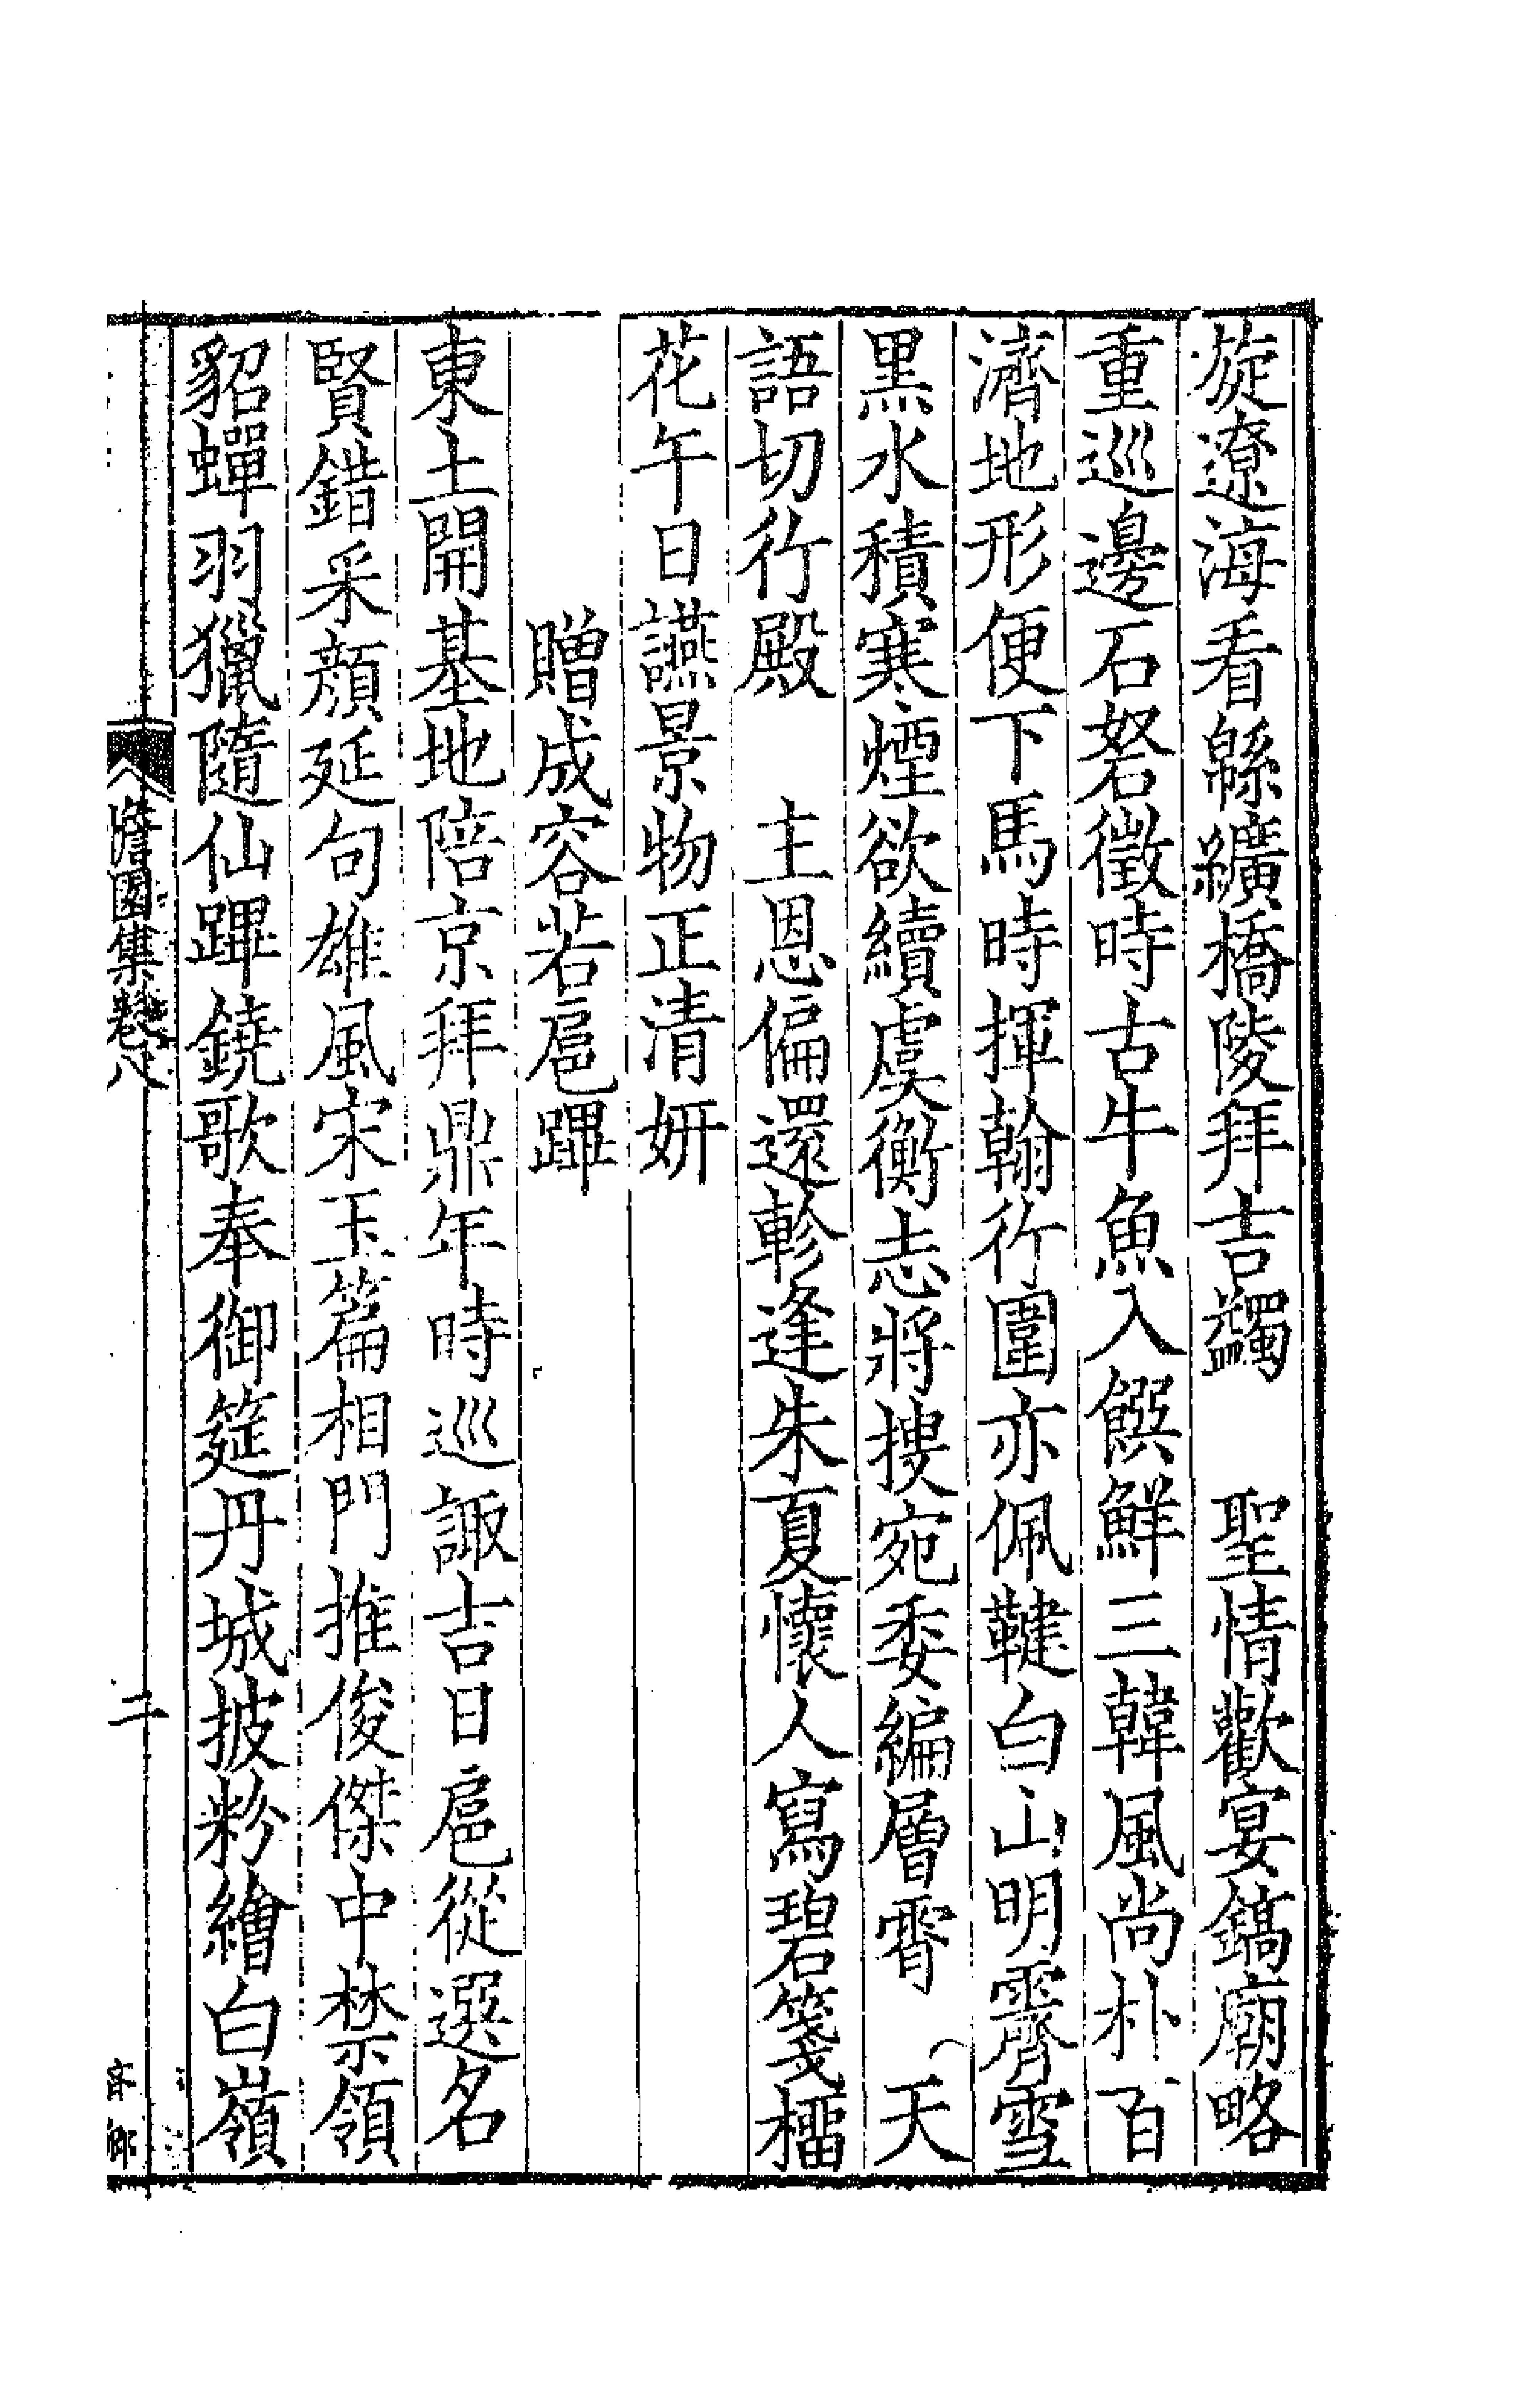 旋遼海看緜纊橋陵拜吉蠲　聖情歡宴鎬廟略
重巡邊石砮徵時古牛魚入饌鮮三韓風尚朴百
濟地形便下馬時揮翰行圍亦佩鞬白山明霽雪
黑水積寒煙欲續虞衡志將搜宛委編層霄　天
語切行殿　主恩偏還軫逢朱夏懷人寫碧箋榴
花午日讌景物正清妍
贈成容若扈蹕
東土開基地陪京拜鼎年時巡諏吉日扈從選名
賢錯采顔延句雄風宋玉篇相門推俊傑中禁領
貂蟬羽獵隨仙蹕鐃歌奉御筵丹城披粉繪白嶺
憺園集卷八
二